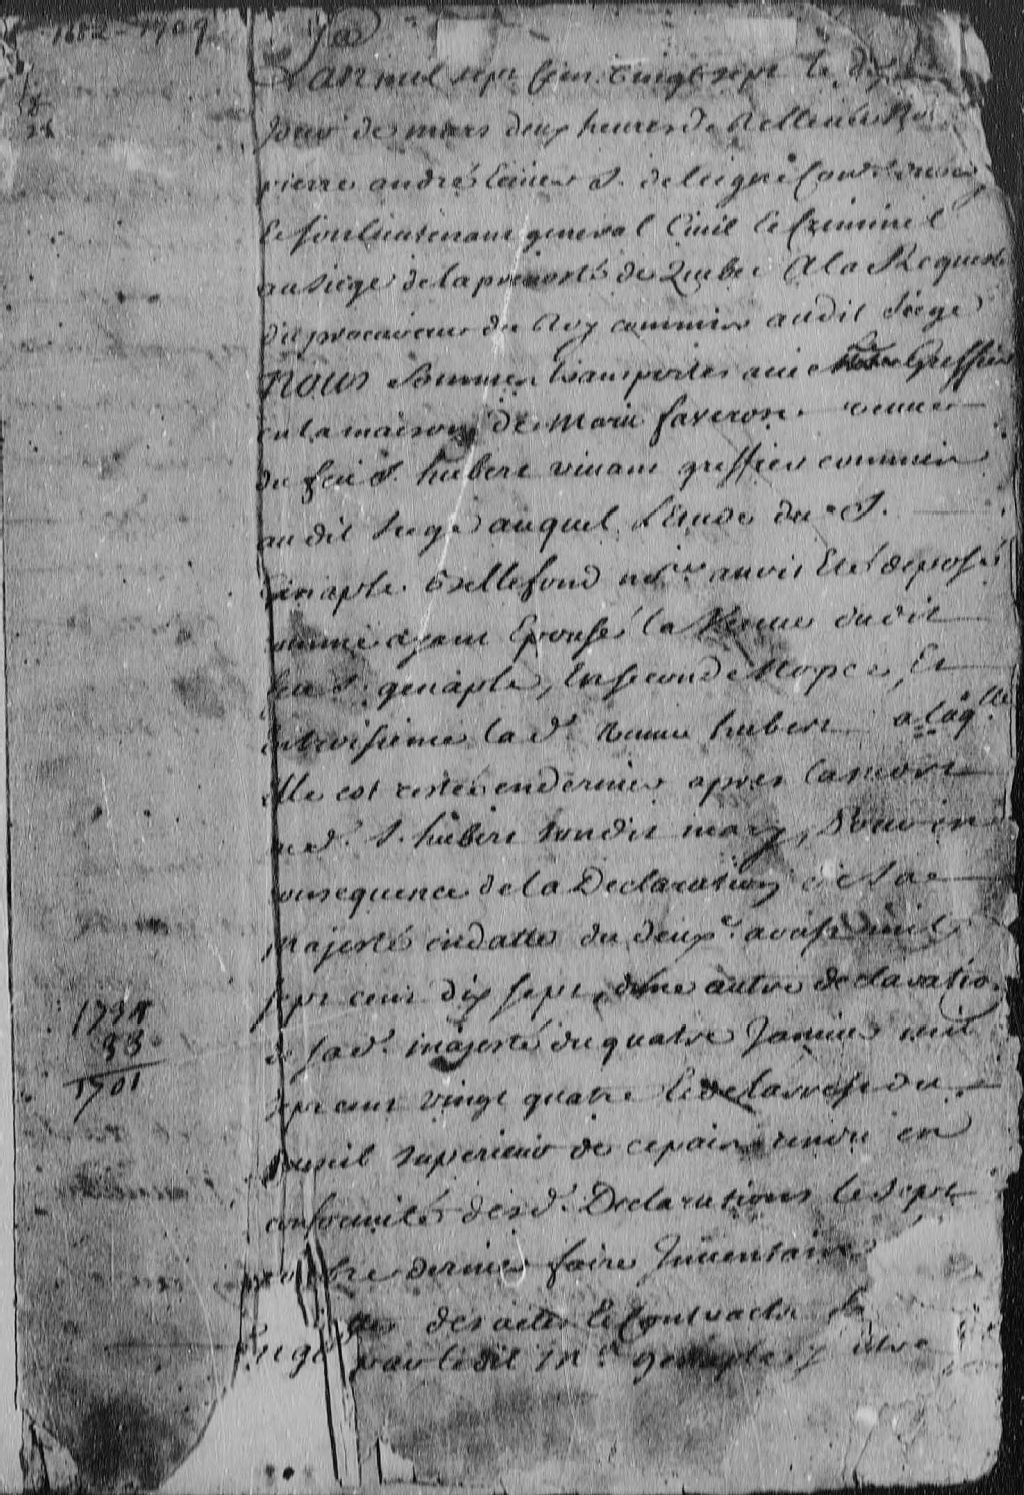 1682-1709
Lan mil sept Cens Vingt sept le
Jour de mars deux heures de Relleuée
pierre andré S. de leigne Cons.
Le lieutenant general Ciuil & Criminel
au siege de la preuosté de Quebec A la Requeste
du procureur du Roy commis audit siege
Nous sommes transportes auec Notre Greffier
en la maison de Marie faveron veuue
du feu S. hubert viuant greffier commis
au dit siege auquel L'Etude du S.
Genaple Bellefond auoit Eté deposé
comme ayant Epousé la Veuue dudit
feu S. genaple, En seconde Nopce, Et
En troisieme la d. veuue hubert a laq.lle
Elle est restée en dernier apres la mort
du d. S. hubert son dit mary, Pour en
consequence de la Declaration de Sa
Majesté en datte du deux.e aoust mil
sept cens dix sept, d'une autre declaration
de sa d. majesté du quatre Januier mil
sept cens vingt quatre & de larrest du
Conseil superieur de ce pais rendu en
conformité desd. Declarations le sept
dernier faire Jnuentaire
des actes & Contracts
par ledit M.e genaple
1734
33
1701